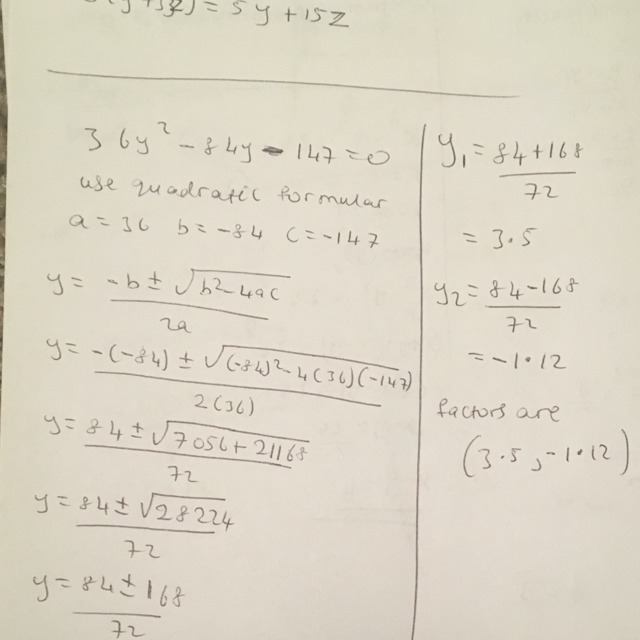 y+3z) = 5y+15z
36y² - 84y - 147 = 0
use quadratic formular
a = 36 b = -84 c = -147
y = -b ± √b²-4ac
2a
y = -(-84) ± √(-84)²-4(36)(-147)
2(36)
y = 84 ± √7056+21168
72
y = 84 ± √28224
72
y = 84 ± 168
72
y₁ = 84+168
72
= 3.5
y₂ = 84-168
72
= -1.12
factors are
(3.5, -1.12)